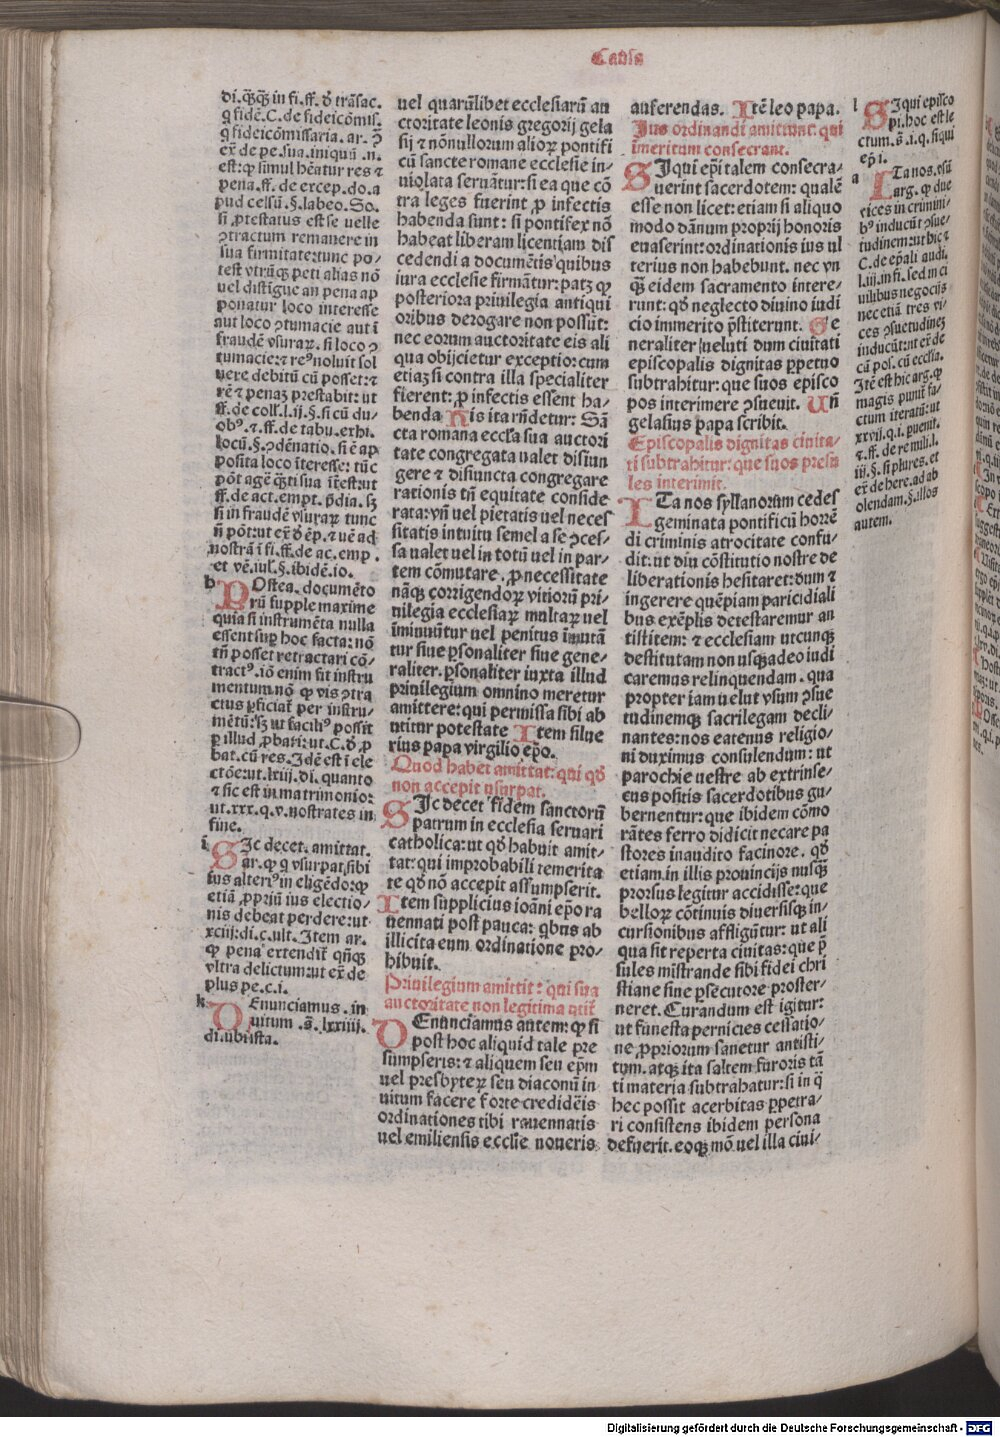 Causa
di. q̃q̃ in fi. ff. ð trãsac.
q̃ fidẽ. C. de fideicõmis.
q̃ fideicõmissaria. ar. ꝯ̃
ex̃ de pe. sua. iniquũ .n.
est: ꝙ simul hẽatur res ⁊
pena. ff. de excep. do. a
pud celsũ .§. labeo. So.
si ꝓtestatus est se uelle
ꝯtractum remanere in
sua firmitate: tunc po/
test vtrũqꝫ peti alias nõ
uel distigue an pena ap
ponatur loco interesse
aut loco ꝯtumacie aut ĩ
fraudẽ vsuraꝝ. si loco ꝯ
tumacie: ⁊ reꝰ noluit sol
uere debitũ cũ posset: ⁊
rẽ ⁊ penaꝫ prestabit: ut
ff. de coll. l. ij. §. si cũ du/
obꝰ. ⁊ ff. de tabu. exhi.
locũ. §. ꝯdẽnatio. si ẽ ap
posita loco ĩteresse: tũc
põt agẽ q̃ti sua ĩterest: ut
ff. de act. empt. p̃dia. sꝫ
si in fraudẽ vsuraꝝ tunc
ñ põt: ut ex̃ ð ẽp. ⁊ uẽ ad
nostrã ĩ fi. ff. de ac. emp.
et vẽ. iul. §. ibidẽ. io.
b
POstea. documẽto
rũ supple maxime
quia si instrumẽta nulla
essent sup̃ hoc facta: nõ
tñ posset retractari cõ/
tractꝰ. iõ enim fit instru
mentum. nõ ꝙ vis ꝯtra
ctus ꝑficiat̃ per instru/
mẽtũ: sꝫ ut faciliꝰ possit
ꝑ illud ꝓbari: ut. C. ð ꝓ
bat. cũ res. Idẽ est ĩ ele
ctõe: ut. lxiij. di. quanto
⁊ sic est in matrimonio:
ut. xxx. q. v. nostrates in
fine.
i
SIc decet. amittat.
ar. ꝙ q̃ vsurpat sibi
ius alteriꝰ in eligẽdo: ꝙ
etiã ꝓpriũ ius electio/
nis debeat perdere: ut
xciij. di. c. ult. Item ar.
ꝙ pena extendit̃ qñqꝫ
vltra delictum: ut ex̃ de
plus pe. c. i.
k
DEnunciamus. in
uitum .s̃. lxxiiij.
di. ubi ista.
uel quarũlibet ecclesiarũ au
ctoritate leonis gregorij gela
sij ⁊ nõnullorum alioꝝ pontifi
cũ sancte romane ecclesie in/
uiolata seruãtur: si ea que cõ
tra leges fuerint ꝓ infectis
habenda sunt: si pontifex nõ
habeat liberam licentiam dis
cedendi a documẽtis quibus
iura ecclesie firmãtur: patꝫ ꝙ
posteriora priuilegia antiqui
oribus derogare non possũt:
nec eorum auctoritate eis ali
qua obijcietur exceptio: cum
etiaꝫ si contra illa specialiter
fierent: ꝓ infectis essent ha/
benda His ita rñdetur: Sã
cta romana eccl̃ia sua auctori
tate congregata ualet disiun
gere ⁊ disiuncta congregare
rationis tñ equitate conside
rata: vñ uel pietatis uel neces
sitatis intuitu semel a se ꝯces/
sa ualet uel in totũ uel in par/
tem cõmutare. ꝓ necessitate
nãqꝫ corrigendoꝝ vitiorũ pri/
uilegia ecclesiaꝝ multaꝝ uel
ĩminuũtur uel penitus ĩmutã
tur siue ꝑsonaliter siue gene/
raliter. ꝑsonaliter iuxta illud
priuilegium omnino meretur
amittere: qui permissa sibi ab
utitur potestate Item silue
rius papa virgilio ep̃o.
Quod habet amittat: qui qð
non accepit usurpat.
SIc decet fidem sanctorũ
patrum in ecclesia seruari
catholica: ut qð habuit amit/
tat: qui improbabili temerita
te qð nõ accepit assumpserit.
Item supplicius ioãni ep̃o ra
uennati post pauca: qbus ab
illicita eum ordinatione pro/
hibuit.
Priuilegium amittit: qui sua
auctoritate non legitima utit̃
DEnunciamus autem: ꝙ si
post hoc aliquid tale pre
sumpseris: ⁊ aliquem seu ep̃m
uel presbyteꝝ seu diaconũ in
uitum facere forte credidẽis
ordinationes tibi rauennatis
uel emiliensis eccl̃ie noueris
auferendas. Itẽ leo papa.
Jus ordinandi amittunt: qui
ĩmeritum consecrant.
SIqui ep̃i talem consecra/
uerint sacerdotem: qualẽ
esse non licet: etiam si aliquo
modo dãnum proprij honoris
euaserint: ordinationis ius ul
terius non habebunt. nec vn
q̃ꝫ eidem sacramento intere/
runt: qð neglecto diuino iudi
cio immerito p̃stiterunt. Ge
neraliter ueluti dum ciuitati
episcopalis dignitas ꝑpetuo
subtrahitur: que suos episco
pos interimere ꝯsueuit. Uñ
gelasius papa scribit.
Episcopalis dignitas ciuita/
ti subtrahitur: que suos presu
les interimit.
ITa nos syllanorum cedes
geminata pontificũ horrẽ
di criminis atrocitate confu/
dit: ut diu cõstitutio nostre de
liberationis hesitaret: dum ⁊
ingerere quẽpiam paricidiali
bus exẽplis detestaremur an
tistitem: ⁊ ecclesiam utcunqꝫ
destitutam non usqꝫadeo iudi
caremus relinquendam. qua
propter iam uelut vsum ꝯsue
tudinemqꝫ sacrilegam decli/
nantes: nos eatenus religio/
ni duximus consulendum: ut
parochie uestre ab extrinse/
cus positis sacerdotibus gu/
bernentur: que ibidem cõmo
rãtes ferro didicit necare pa
stores inaudito facinore. qð
etiam in illis prouincijs nusq̃ꝫ
prorsus legitur accidisse: que
belloꝝ cõtinuis diuersisqꝫ in/
cursionibus affligũtur: ut ali
qua sit reperta ciuitas: que p̃
sules mistrande sibi fidei chri
stiane sine ꝑsecutore proster/
neret. Curandum est igitur:
ut funesta pernicies cessatio/
ne ꝓpriorum sanetur antisti/
tum. atqꝫ ita saltem furoris tã
ti materia subtrahatur: si in q̃
hec possit acerbitas ꝑpetra/
ri consistens ibidem persona
defuerit. eoqꝫ mõ uel illa ciui/
l
SIqui episco
pi. hoc est le
ctum .s̃. i. q. siqui
ep̃i.
a
ITa nos. esũ
arg. ꝙ due
vices in crimini/
bꝰ inducũt ꝯsue/
tudinem: ut hic ⁊
C. de ep̃ali audi.
l. iij. in fi. sed in ci
uilibus negocijs
nec etiã tres vi/
ces ꝯsuetudineꝫ
inducũt: ut ex̃ de
cã pos. cũ eccl̃ia.
Itẽ est hic arg. ꝙ
magis punit̃ fa/
ctum iteratũ: ut
xxvij. q. i. puenit.
⁊ ff. de re mili. l.
iij. §. si plures. et
ex̃ de here. ad ab
olendam. §. illos
autem.
Digitalisierung gefördert durch die Deutsche Forschungsgemeinschaft - DFG